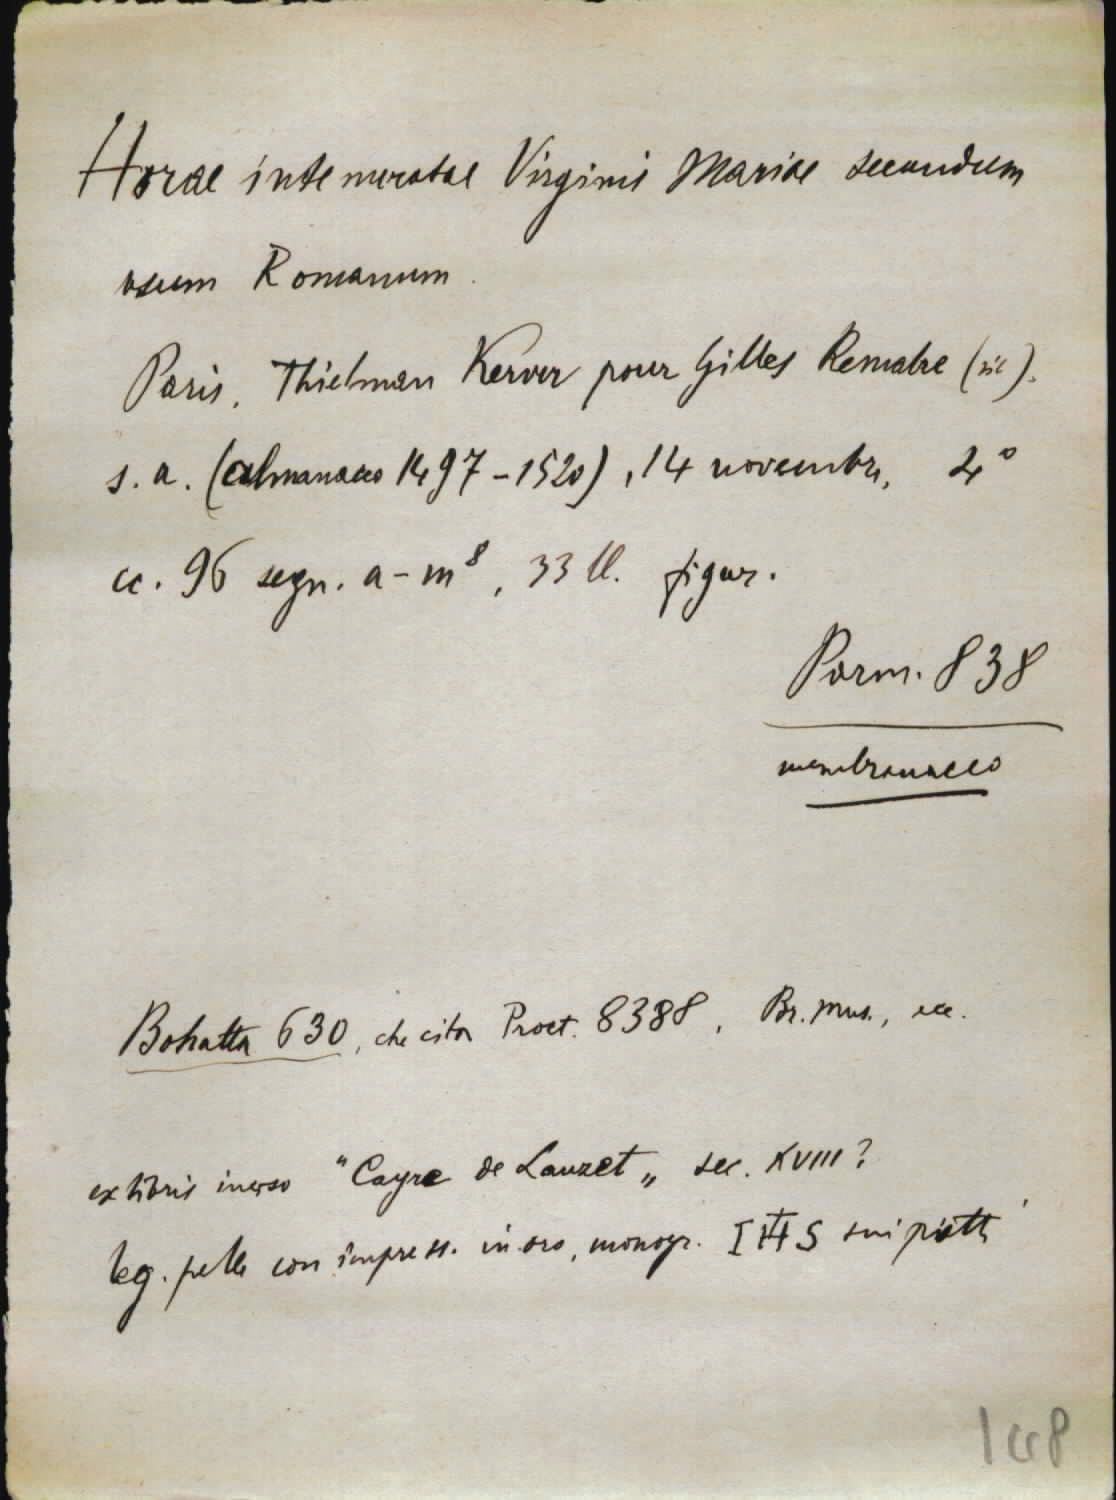 Horae intemeratae Virginis Mariae secundum
usum Romanum.
Paris, Thielman Kerver pour Gilles Remalre (sic).
s. a. (almanacco 1497-1520), 14 novembr., 4°
cc. 96 segn. a-m⁸, 33 ll. figur.
Parm. 838
membranaceo
Bohatta 630, che cita Proct. 8388, Br. Mus., ecc.
ex libris inciso "Cayre de Lauzet„ sec. XVIII?
leg. pelle con impress. in oro, monogr. IHS sui piatti
148